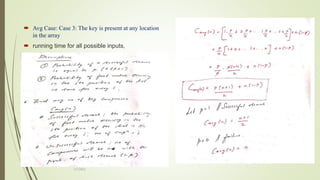 Avg Case: Case 3: The key is present at any location
in the array
running time for all possible inputs,
Assumptions
① Probability of a successful search
is equal to P (0≤P≤1).
② Probability of first match occurring
in the ith position of the list is
same for every i.
of key comparisons
Cavg(n)
* Successful search; the probability
of first match occurring in the
ith position of the list is
for every i; no of
* Unsuccessful search; no of
comparisons will be with the
of search (1-P)
Cavg(n) = [1·P/n + 2·P/n + … i·P/n + … + n·P/n] + n(1-P)
= P/n [1+2+… i + … + n] + n(1-P)
= P/n · n(n+1)/2 + n(1-P)
Cavg(n) = P(n+1)/2 + n(1-P)
Let p=1 Successful search
Cavg(n) = (n+1)/2
p=0 failure.
Cavg(n) = n